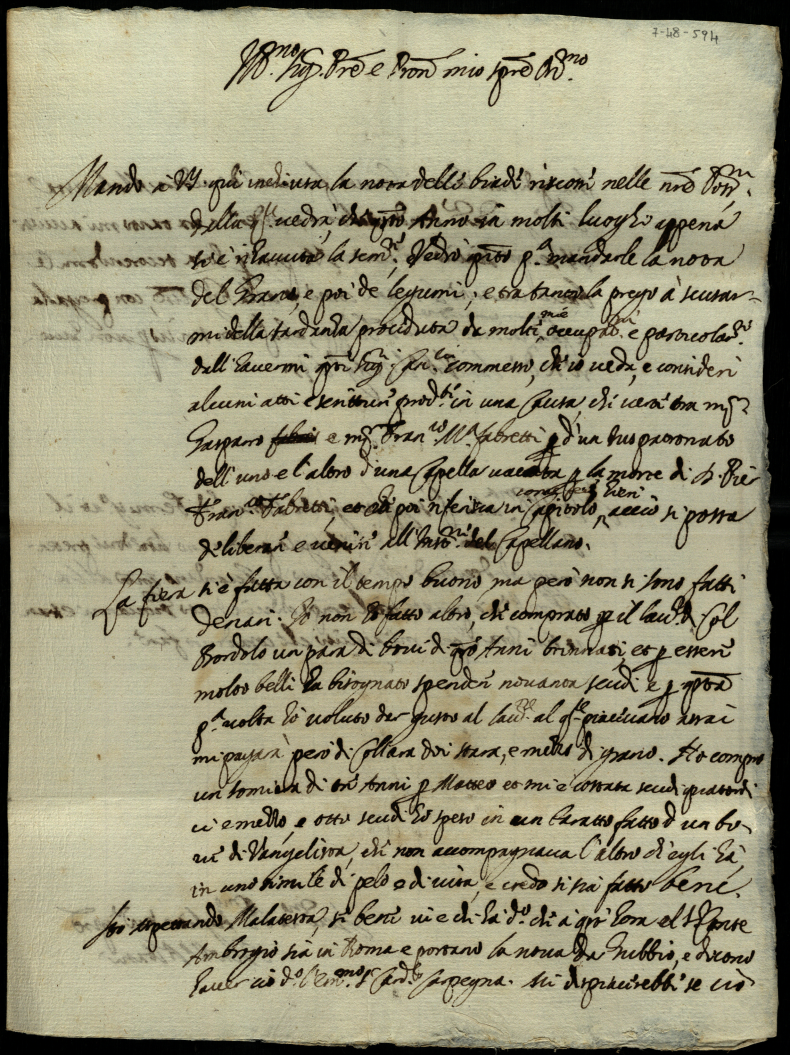 7-48-594
Ill.mo Sig. Prē e Pron mio sprē Oss.mo
Mando à VS. qui inclusa la nota delli biadi riscossi nelle nr̃e Poss.ni
della vedrà, che qsto Anno in molti luoghi appena
si è rihavuta la sem.e Vedrò qto p.a mandarle la nota
del Grano, e poi de legumi, e tra tanto la prego à scusar-
mi della tardanza proceduta da molte mie occupat.ni e particolar.e
dall'havermi qsti Sig.i commesso, che io veda, e consideri
alcuni atti e scritture prod.te in una Causa, che verte tra m.r
Gasparo e m.r Fran.co M.a Fabretti p d'un Juspatronato
dell'uno e l'altro d'una Capella vacata p la morte di D. Pier
Fran.co Fabretti, et che poi riferisca in Capitolo, acciò si possa
deliberare e venire all' del Capellano.
La fiera si è fatta con il tempo buono, ma però non si sono fatti
denari. Io non hò fatto altro, che comprato p il lav.re di Col
Bordolo un para di bovi di qtro Anni, et p essere
molto belli hà bisognato spendere novanta scudi, e p qsta
p.a volta hò voluto dar gusto al lav.re al q.le piacevano assai
mi pagarà però di Collara doi stara, e mezzo di grano. Hò compro
un somiera di tre Anni p Matteo et mi è costata scudi quattordi
ci e mezzo, e otto scudi hò speso in un baratto fatto d'un bo-
ve di Vangelista, che non accompagnava l'altro ch'egli hà,
in uno simile di pelo e di vita, e credo si sia fatto bene.
Stò aspettando Malatesta, si bene vi è chi hà d.o che à qst'hora el S.r Conte
Ambrogio sia in Roma e portano la nova da Gubbio, e dicono
haver ciò d.o l'Em.mo S.r Card.le Carpegna. Mi dispiacerebbe se ciò